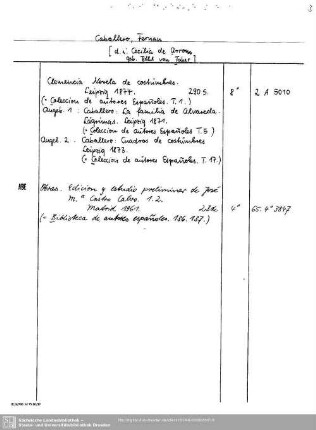 Caballero, Fernan
[d. i. Cecilia de Arrom,
geb. Böhl von Faber]
Clemencia Novela de costumbres.
Leipzig 1874. 290 S. 8° 2 A 5010
(= Coleccion de autores Españoles. T. 1.)
Angeb. 1: Caballero: La familia de Alvareda.
Lágrimas. Leipzig 1871.
(= Coleccion de autores Españoles T. 5)
Angeb. 2: Caballero: Cuadros de costumbres
Leipzig 1873.
(= Coleccion de autores Españoles. T. 17.)
NBE Obras. Edicion y estudio preliminar de José
M.ª Castro Calvo. 1.2.
Madrid 1961. 4° 65. 4° 3847
(= Biblioteca de autores españoles. 136. 137.)
Sächsische Landesbibliothek –
Staats- und Universitätsbibliothek Dresden